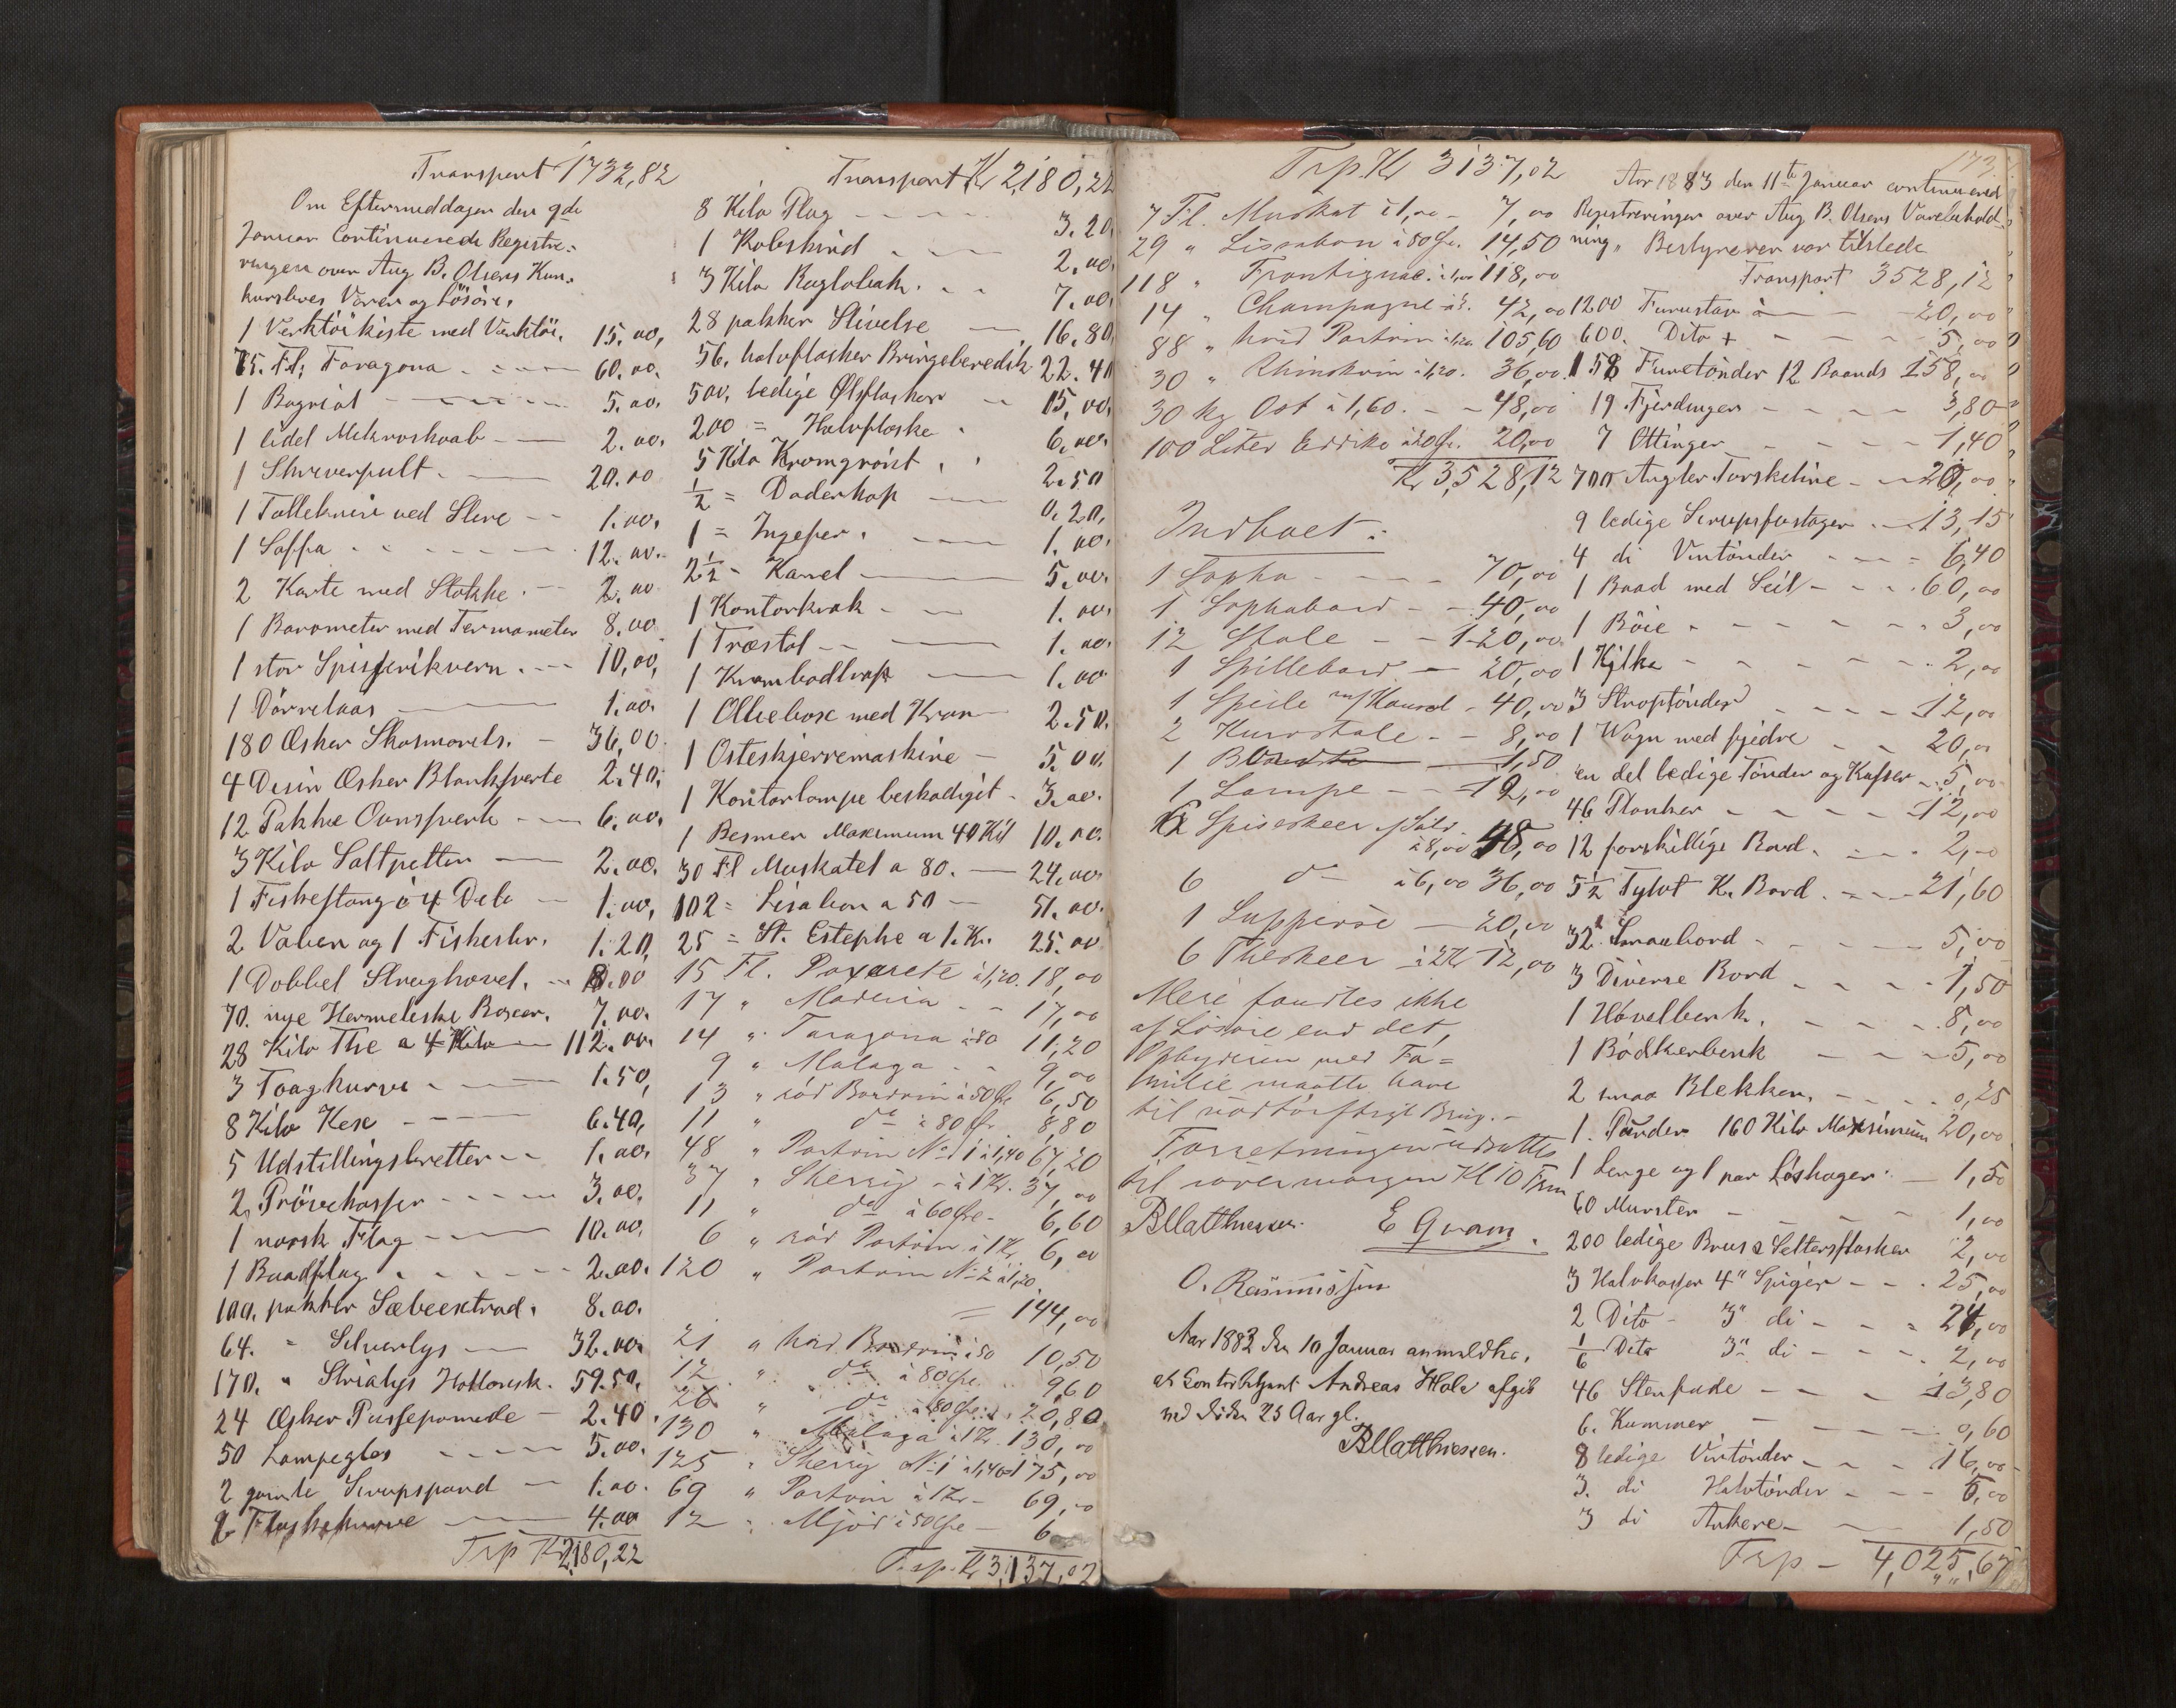 Transport 1732,82
Om Eftermiddagen den 9de
Januar Continuerede Registre-
ringen over Aug B. Olsens Kon-
kursboes Varer og Lösöre.
1 Verktöikiste med Verktöi. 15.00,
75. Fl; Taragona 60.00.
1 Bagvist 5.00.
1 lidet 2.00.
1 Skriverpult 20.00
1 Tollekniv ved Slire 1.00,
1 Soffa 12.00.
2 Karte med Stokke 2.00
1 Barometer med Termometer 8.00
1 stor 10,00,
1 Dörrelaas 1.00.
180 Æsker Skosmørels. 36,00
4 Desin Æsker Blanksverte 2.40,
12 Pakke Ovnsverte 6.00,
3 Kilo Saltpetter 2.00.
1 Fiskestang i 4 Dele 1.00,
2 Vaben og 1 Fiskesbr. 1.20,
1 Dobbel Strughøvel. 8.00
70. nye Hermetiske Boxer. 7.00.
28 Kilo The a 4 Kilo 112.00.
3 Toagkurve 1.50,
8 Kilo Kex 6.40,
5 Udstillingsbretter 1.00.
2 Prövekasser 3.00.
1 norsk Flag 10.00.
1 Baadflag 2.00.
100. pakker Sæbeextrad. 8.00.
64. " Silverlys 32.00
170. " Strialys Hollonsk. 59.50.
24 Æsker Pussepomede 2.40.
50 Lampeglas 5.00.
2 gamle Sirupspand 1.00.
2 Flaskekurve 4.00
Trp Kr 2180,22
Transport Kr 2180,22
8 Kilo Plug 3.20
1 Kalvskind 2.00.
3 Kilo Rugtobak 7.00.
28 pakker Stivelse 16.80,
56. halvflasker Bringeberedik 22.40
500, ledige Ølflasker 15,00,
200 = Halvflaske 6,00.
5 Kilo Kromgrönt 2.50
1/2 = Doderkop 0.20,
1 = Ingefer. 1.00.
2 1/2 - Kanel 5.00.
1 Kontorkrak 1.00.
1 Træstol 1.00.
1 Krambodtrap 1.00
1 Oliebox med Kran 2.50.
1 Osteskjerremaskine 5.00.
1 Kontorlampe beskadiget 3.00.
1 Besmer Maximum 40 Kil 10.00.
30 Fl Muskatel a 80. 24.00.
102 = Lisabon a 50 51.00.
25 = St. Estephe a 1. Kr. 25.00
15 Fl. Paxarete à 1,20. 18,00
17 " Madeira 17,00
14 " Taragona à 80 11,20
9 " Malaga 9,00
13 " röd Bordvin à 50 Øre 6,50
11 " do à 80 Ør. 8,80
48 " Portvin No 1 à 1,40 67,20
37 " Sherry à 1 Kr. 37,00
11 " do à 60 Øre 6,60
6 " röd Portvin à 1 Kr. 6,00
120 " Portvin No 2 à 1,20
= 144,00
21 " hvid Bordvin à 50 10,50
12 " do à 80 Øre 9,60
26 " do à 80 Øre 20,80
130 " Malaga à 1 Kr. 130,00
125 " Sherry No 1 à 1,40 175,00
69 " Portvin à 1 Kr 69,00
12 " Mjød à 50 Øre 6
Trsp. Kr 3,137,02
Trp. Kr 3137,02
7 Fl. Muskat à 1,00 7,00
29 " Lissabon à 50 Øre. 14,50
118 " Frontignac à 1,00 118,00
14 " Champagne à 3. 42,00
88 " hvid Portvin à 1,20 105,60
30 " Rhinskvin à 1,20. 36,00
30 kg Ost à 1,60. 48,00
100 Liter Eddike à 20 Ør. 20,00
Kr 3,528,12
Indboet:
1 Sopha 70,00
1 Sophabord 40,00
12 Stole 120,00
1 Spillebord 20,00
1 Speile m/ Konsol 40,00
2 Kurvstole 8,00
1 1,50
1 Lampe 12,00
6 Spiseskeer af Sölv
à 8,00 48,00
6 do à 6,00 36,00
1 Suppeöse 20,00
6 Theskeer à 2 Kr 12,00
Mere fandtes ikke
af Lösöre end det,
Opbyderen med Fa=
milie maatte have
til nödtörftigt Brug.-
Forretningen udsattes
til overmorgen Kl 10 Form
BMatthiessen. E Qvam.
O. Rasmussen
Aar 1883 den 10 Januar anmeldtes,
at Andreas Hole afgik
ved Døden 25 Aar gl.
BMatthiessen.
173.
Aar 1883 den 11te Januar continuered
Registreringen over Aug B. Olsens Varebehold-
ning, Bestyreren var tilstede
Transport 3528,12
1200 Furustav à 20,00
600. Dito + 5,00
158 Furetönder 12 Baands 158,00
19 Fjerdinger 3,80
7 Ottinger 1,40
700 Angler Torskeline 20,00
9 ledige Sirupsfustager 13,15
4 di Vintönder 6,40
1 Baad med Seil 60,00
1 Böie 3,00
1 Kjelke 2,00
3 Stroptönder 12,00
1 Vogn med fjedre 20,00
en del ledige Tönder og Kasser 5,00
46 Planker 12,00
12 forskillige Bord. 2,00
5 1/2 Tylvt K. Bord. 21,60
32 Smaabord 5,00
3 Diverse Bord 1,50
1 Hövelbenk. 8,00
1 Bödkerbenk 5,00
2 smaa Blekker, 0,25
1. Punder 160 Kilo Maximum 20,00
1 Lenge og 1 par Löshager 1,50
60 Mursten 1,00
200 ledige Brus & Seltersflasker 2,00
3 Halvkasser 4" Spiger 25,00
2 Dito 3" di 24,00
1/6 Dito 3" di 2,00
46 Stenfade 13,80
6. Kummer 0,60
8 ledige Vintönder 16,00
3. di Halvtönder 5,00
3 di Ankere 1,50
Trp 4,025,67